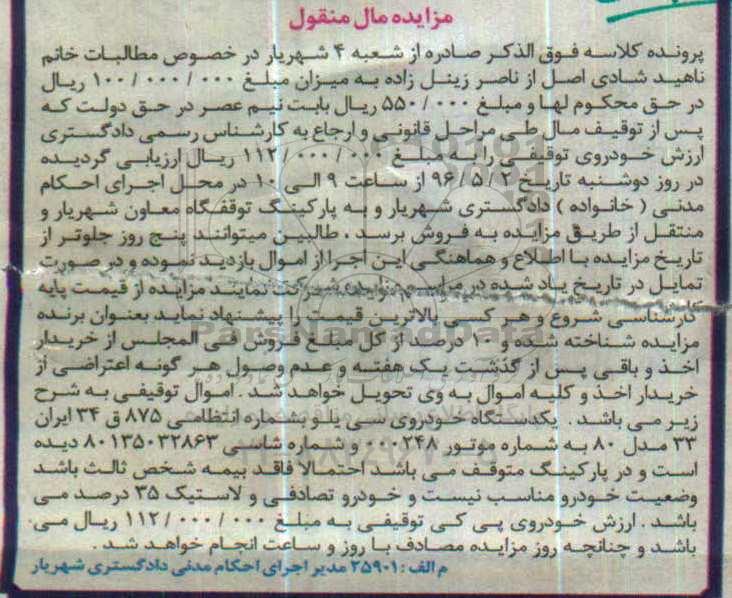 مزایده مال منقول
پرونده کلاسه فوق الذکر صادره از شعبه ۴ شهریار در خصوص مطالبات خانم
ناهید شادی اصل از ناصر زینل زاده به میزان مبلغ ۱۰۰/۰۰۰/۰۰۰ ریال
در حق محکوم لها و مبلغ ۵۵۰/۰۰۰ ریال بابت نیم عصر در حق دولت که
پس از توقیف مال طی مراحل قانونی و ارجاع به کارشناس رسمی دادگستری
ارزش خودروی توقیفی را به مبلغ ۱۱۲/۰۰۰/۰۰۰ ریال ارزیابی گردیده
در روز دوشنبه تاریخ ۹۶/۵/۲ از ساعت ۹ الی ۱۰ در محل اجرای احکام
مدنی (خانواده) دادگستری شهریار و به پارکینگ توقفگاه معاون شهریار و
منتقل از طریق مزایده به فروش برسد، طالبین میتوانند پنج روز جلوتر از
تاریخ مزایده با اطلاع و هماهنگی این اجرا از اموال بازدید نموده و در صورت
تمایل در تاریخ یاد شده در مراسم مزایده شرکت نمایند مزایده از قیمت پایه
کارشناسی شروع و هر کسی بالاترین قیمت را پیشنهاد نماید بعنوان برنده
مزایده شناخته شده و ۱۰ درصد از کل مبلغ فروش فی المجلس از خریدار
اخذ و باقی پس از گذشت یک هفته و عدم وصول هر گونه اعتراضی از
خریدار اخذ و کلیه اموال به وی تحویل خواهد شد. اموال توقیفی به شرح
زیر می باشد. یکدستگاه خودروی سی یلو بشماره انتظامی ۸۷۵ ق ۳۴ ایران
۳۳ مدل ۸۰ به شماره موتور ۰۰۰۲۴۸ و شماره شاسی ۸۰۱۳۵۰۳۲۸۶۳ دیده
است و در پارکینگ متوقف می باشد احتمالا فاقد بیمه شخص ثالث باشد
وضعیت خودرو مناسب نیست و خودرو تصادفی و لاستیک ۳۵ درصد می
باشد. ارزش خودروی پی کی توقیفی به مبلغ ۱۱۲/۰۰۰/۰۰۰ ریال می
باشد و چنانچه روز مزایده مصادف با روز و ساعت انجام خواهد شد.
م الف: ۲۵۹۰۱ مدیر اجرای احکام مدنی دادگستری شهریار
ParsNamadData